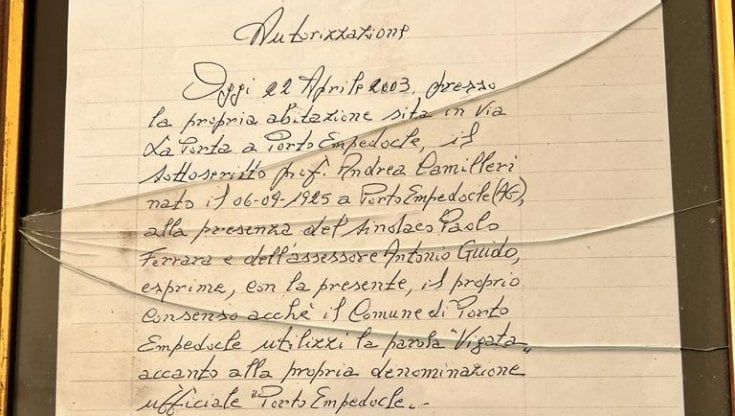 Autorizzazione
Oggi 22 Aprile 2003, presso
la propria abitazione sita in via
La Porta a Porto Empedocle, il
sottoscritto prof. Andrea Camilleri
nato il 06-09-1925 a Porto Empedocle (AG),
alla presenza del sindaco Paolo
Ferrara e dell'assessore Antonio Guido,
esprime, con la presente, il proprio
consenso acché il Comune di Porto
Empedocle utilizzi la parola "Vigata"
accanto alla propria denominazione
ufficiale "Porto Empedocle.-